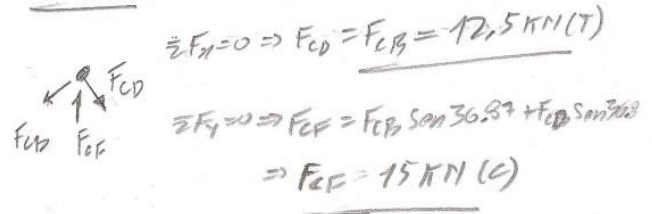 ΣFx=0 => FCD = FCB = 12,5 KN(T)
FCD
FCB FCF
ΣFy=0 => FCF = FCB Sen 36.87 + FCD Sen 36.8
=> FCF = 15 KN (C)